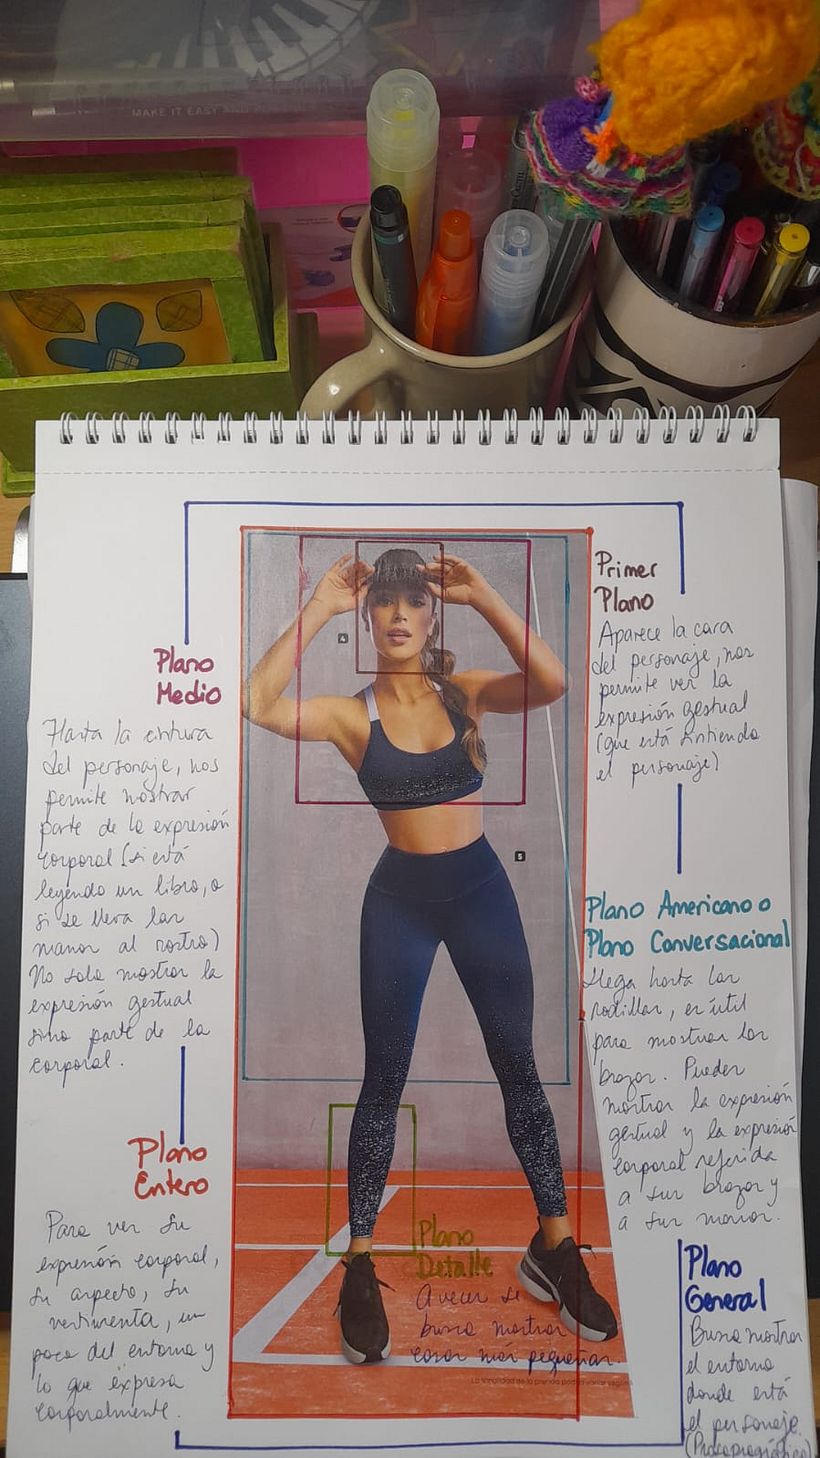 MAKE IT EASY
Plano
Medio
Hasta la cintura
del personaje, nos
permite mostrar
parte de la expresión
corporal (si está
leyendo un libro, o
si se lleva las
manos al rostro)
No solo mostrar la
expresión gestual
sino parte de la
corporal.
Plano
Entero
Para ver su
expresión corporal,
su aspecto, su
vestimenta, un
poco del entorno y
lo que expresa
corporalmente.
4
5
Plano
Detalle
A veces se
busca mostrar
cosas más pequeñas.
La tonalidad de la prenda podrá variar según
Primer
Plano
Aparece la cara
del personaje, nos
permite ver la
expresión gestual
(que está sintiendo
el personaje)
Plano Americano o
Plano Conversacional
Llega hasta las
rodillas, es útil
para mostrar los
brazos. Puedes
mostrar la expresión
gestual y la expresión
corporal referida
a sus brazos y
a sus manos.
Plano
General
Busca mostrar
el entorno
donde está
el personaje.